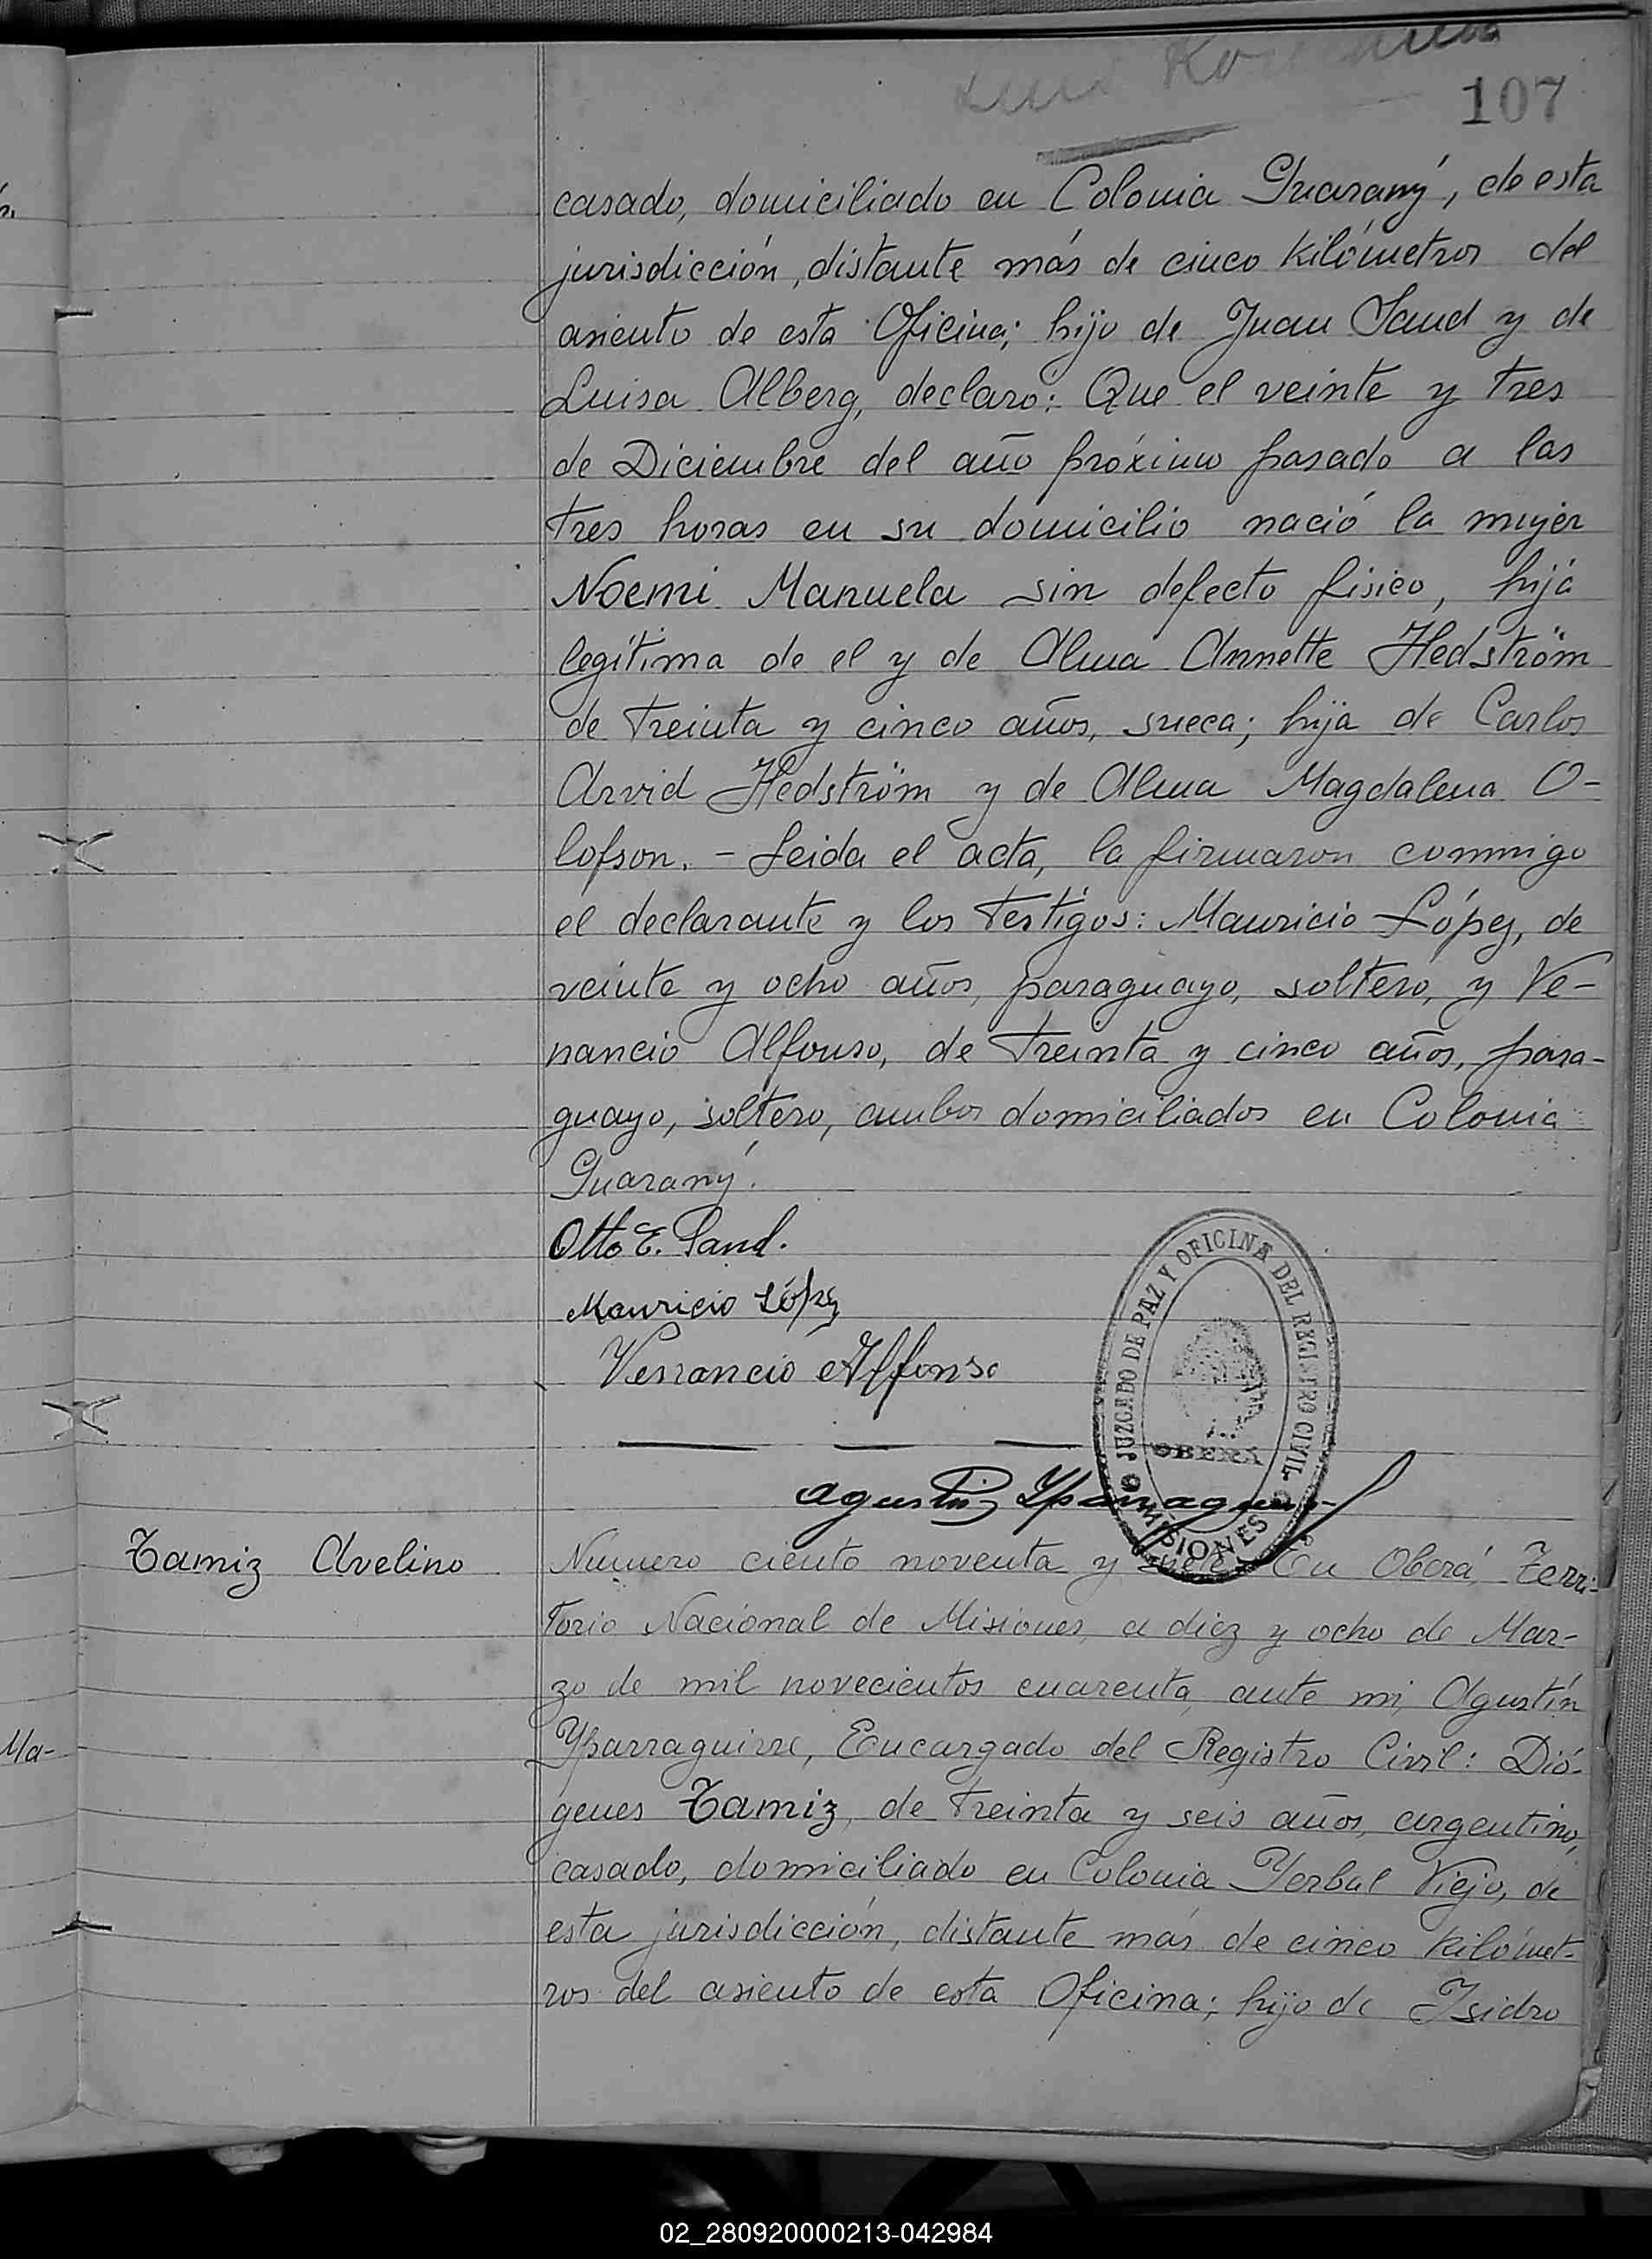 107
casado, domiciliado en Colonia Guarany, de esta
jurisdicción, distante más de cinco kilómetros del
asiento de esta Oficina; hijo de Juan Sand y de
Luisa Alberg, declaro: Que el veinte y tres
de Diciembre del año próximo pasado a las
tres horas en su domicilio nació la mujer
Noemi Manuela sin defecto fisico, hija
legítima de el y de Alma Annette Hedström
de treinta y cinco años, sueca; hija de Carlos
Arvid Hedström y de Alma Magdalena O-
lofson. - Leida el acta, la firmaron conmigo
el declarante y los testigos: Mauricio López, de
veinte y ocho años, paraguayo, soltero, y Ve-
nancio Alfonso, de treinta y cinco años, para-
guayo, soltero, ambos domiciliados en Colonia
Guarany.
Otto E. Sand.
Mauricio López
Venancio Alfonso
JUZGADO DE PAZ Y OFICINA DEL REGISTRO CIVIL
OBERÁ
MISIONES
Agustin Yparraguirre
Tamiz Avelino
Número ciento noventa y siete En Oberá, Terri-
torio Nacional de Misiones, a diez y ocho de Mar-
zo de mil novecientos cuarenta, ante mi, Agustín
Yparraguirre, Encargado del Registro Civil: Dió-
genes Tamiz, de treinta y seis años, argentino,
casado, domiciliado en Colonia Yerbal Viejo, de
esta jurisdicción, distante más de cinco kilómet-
ros del asiento de esta Oficina; hijo de Isidro
Ma-
02_280920000213-042984